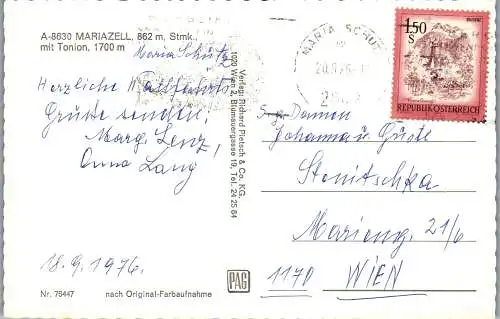 A-8630 MARIAZELL, 862 m, Stmk.
mit Tonion, 1700 m
Maria Schutz
Herzliche Wallfahrts
Grüße senden:
Marg. Lenz,
Anna Lang
18.9.1976.
Nr. 76447
nach Original-Farbaufnahme
Verlag Richard Pietsch & Co. KG.
1020 Wien 2, Blumauergasse 19, Tel. 24 25 64
PAG
MARIA SCHUTZ
1.50
S
REPUBLIK ÖSTERREICH
Damen
Johanna u Gustl
Stenitschka
Marieng. 21/6
1170 WIEN